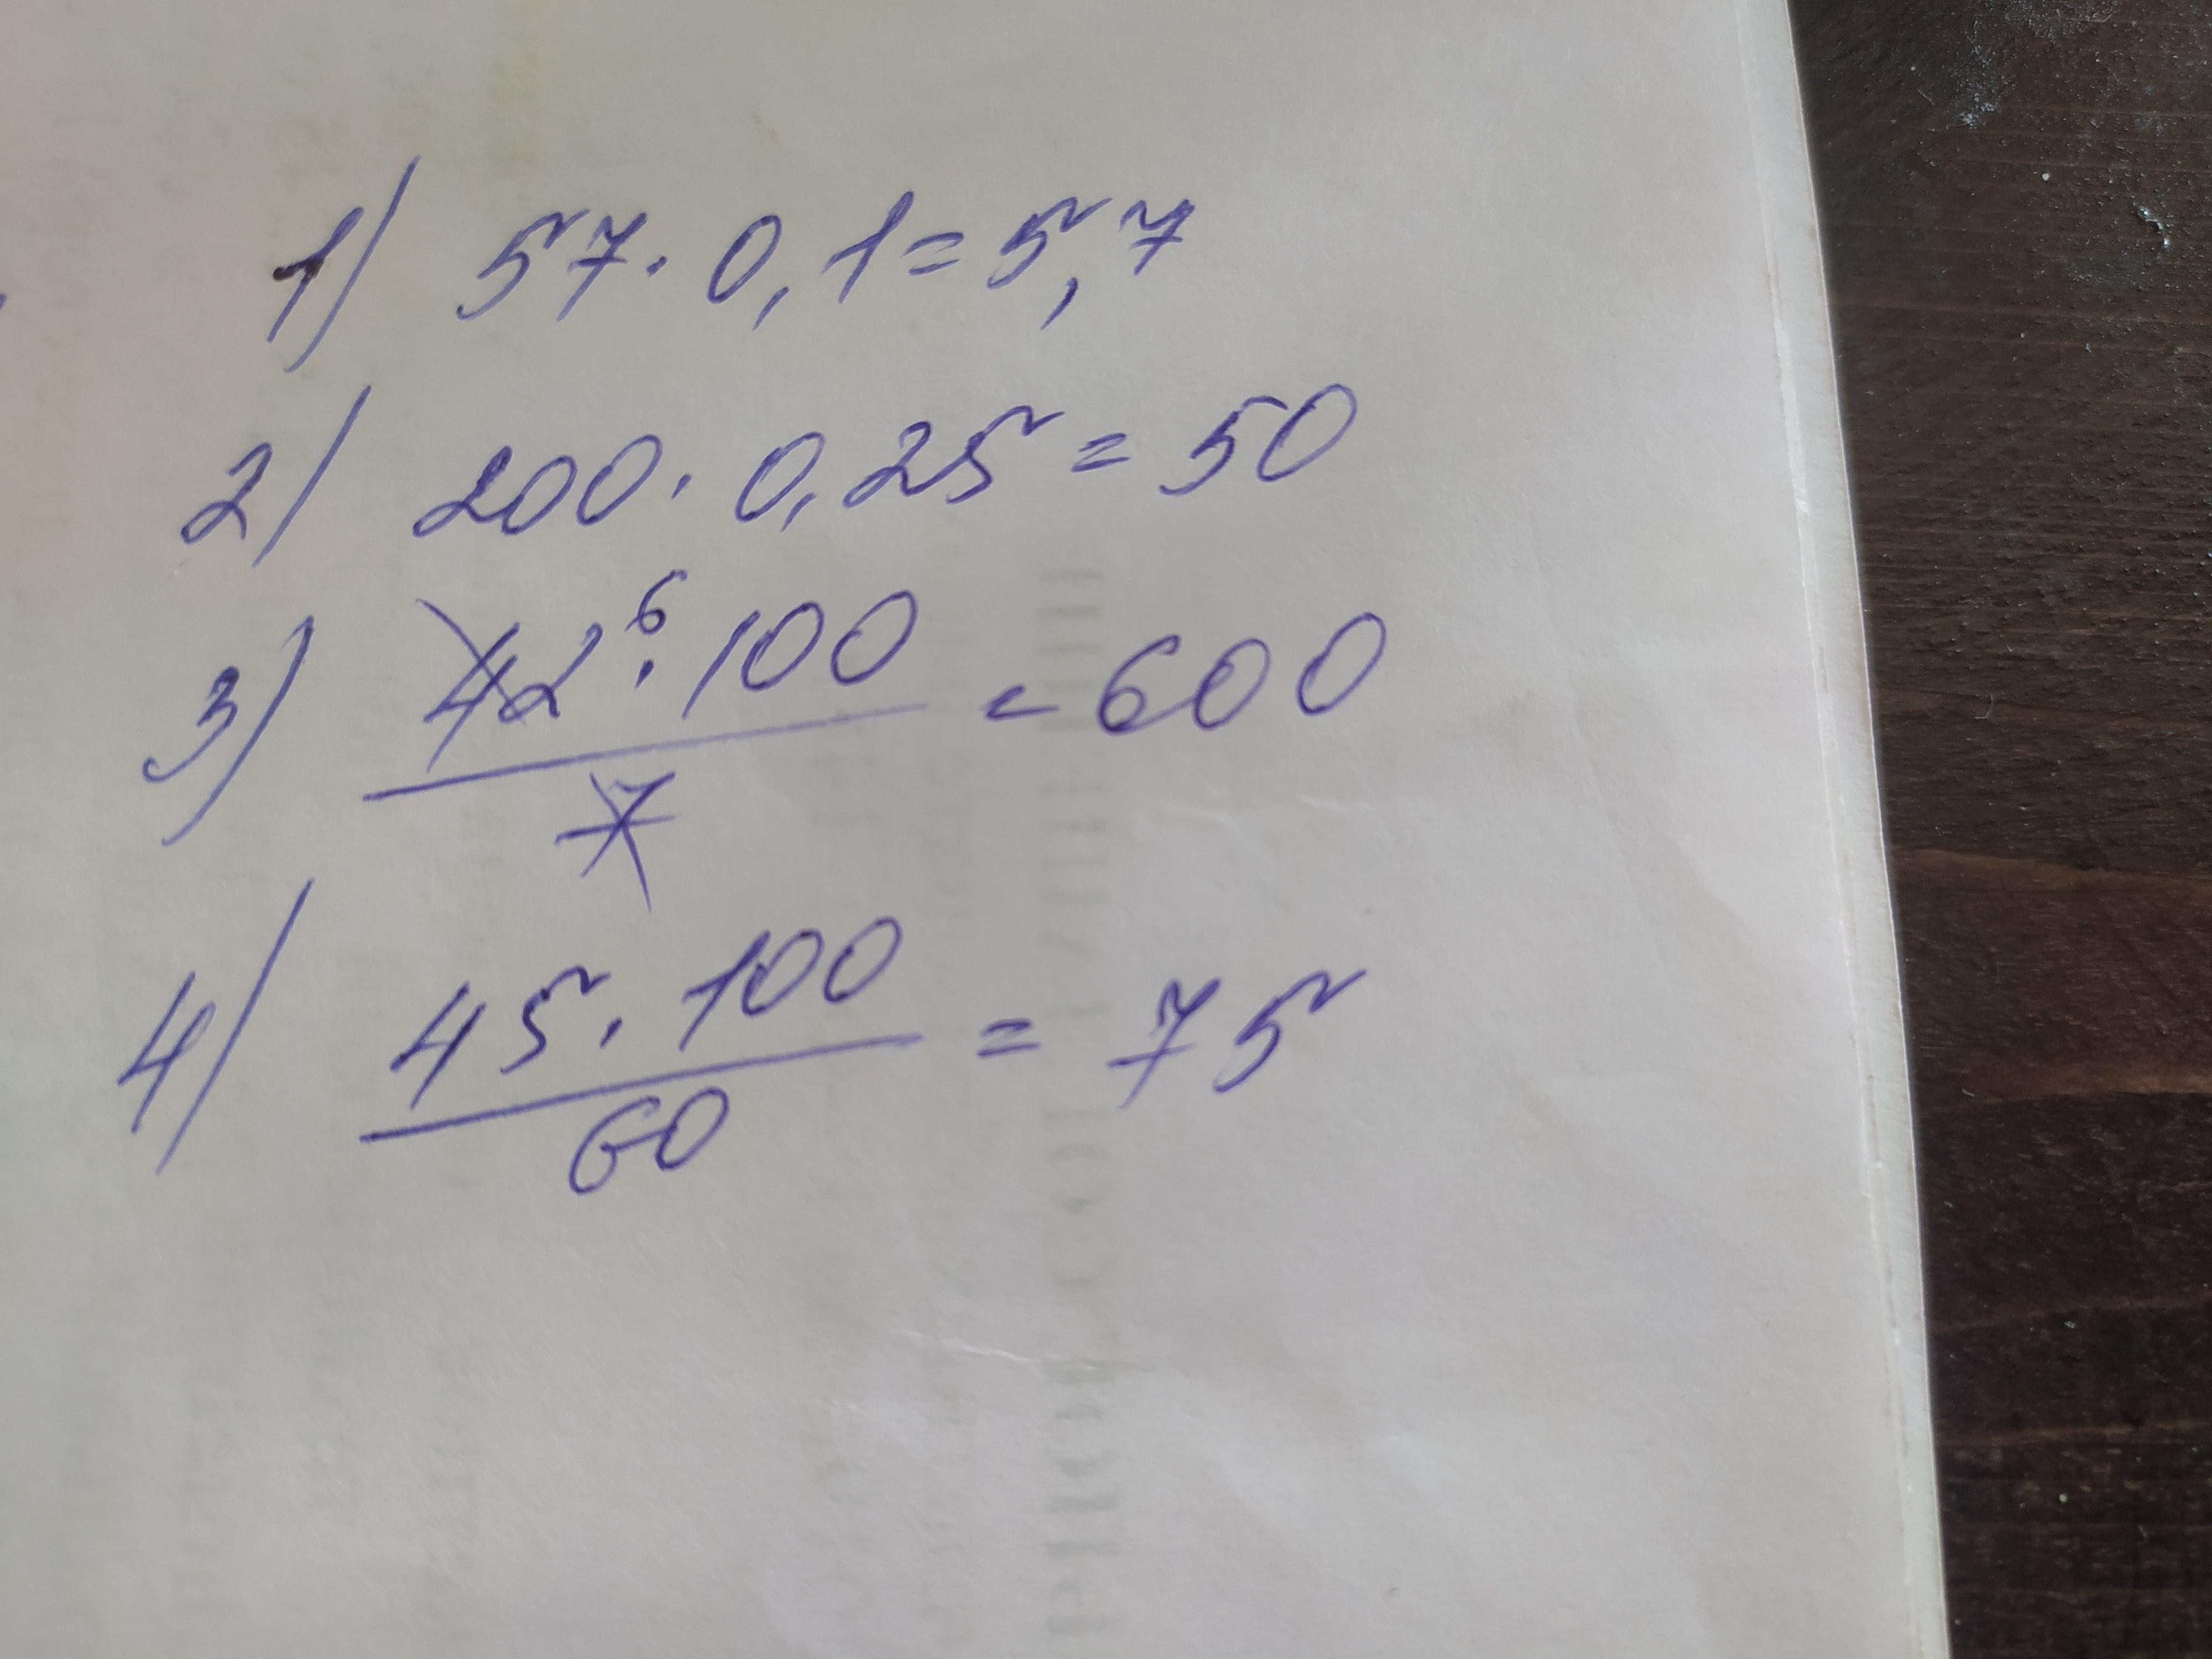 1) 57 · 0,1 = 5,7
2) 200 · 0,25 = 50
3) 42 6 · 100 / 7 = 600
4) 45 · 100 / 60 = 75